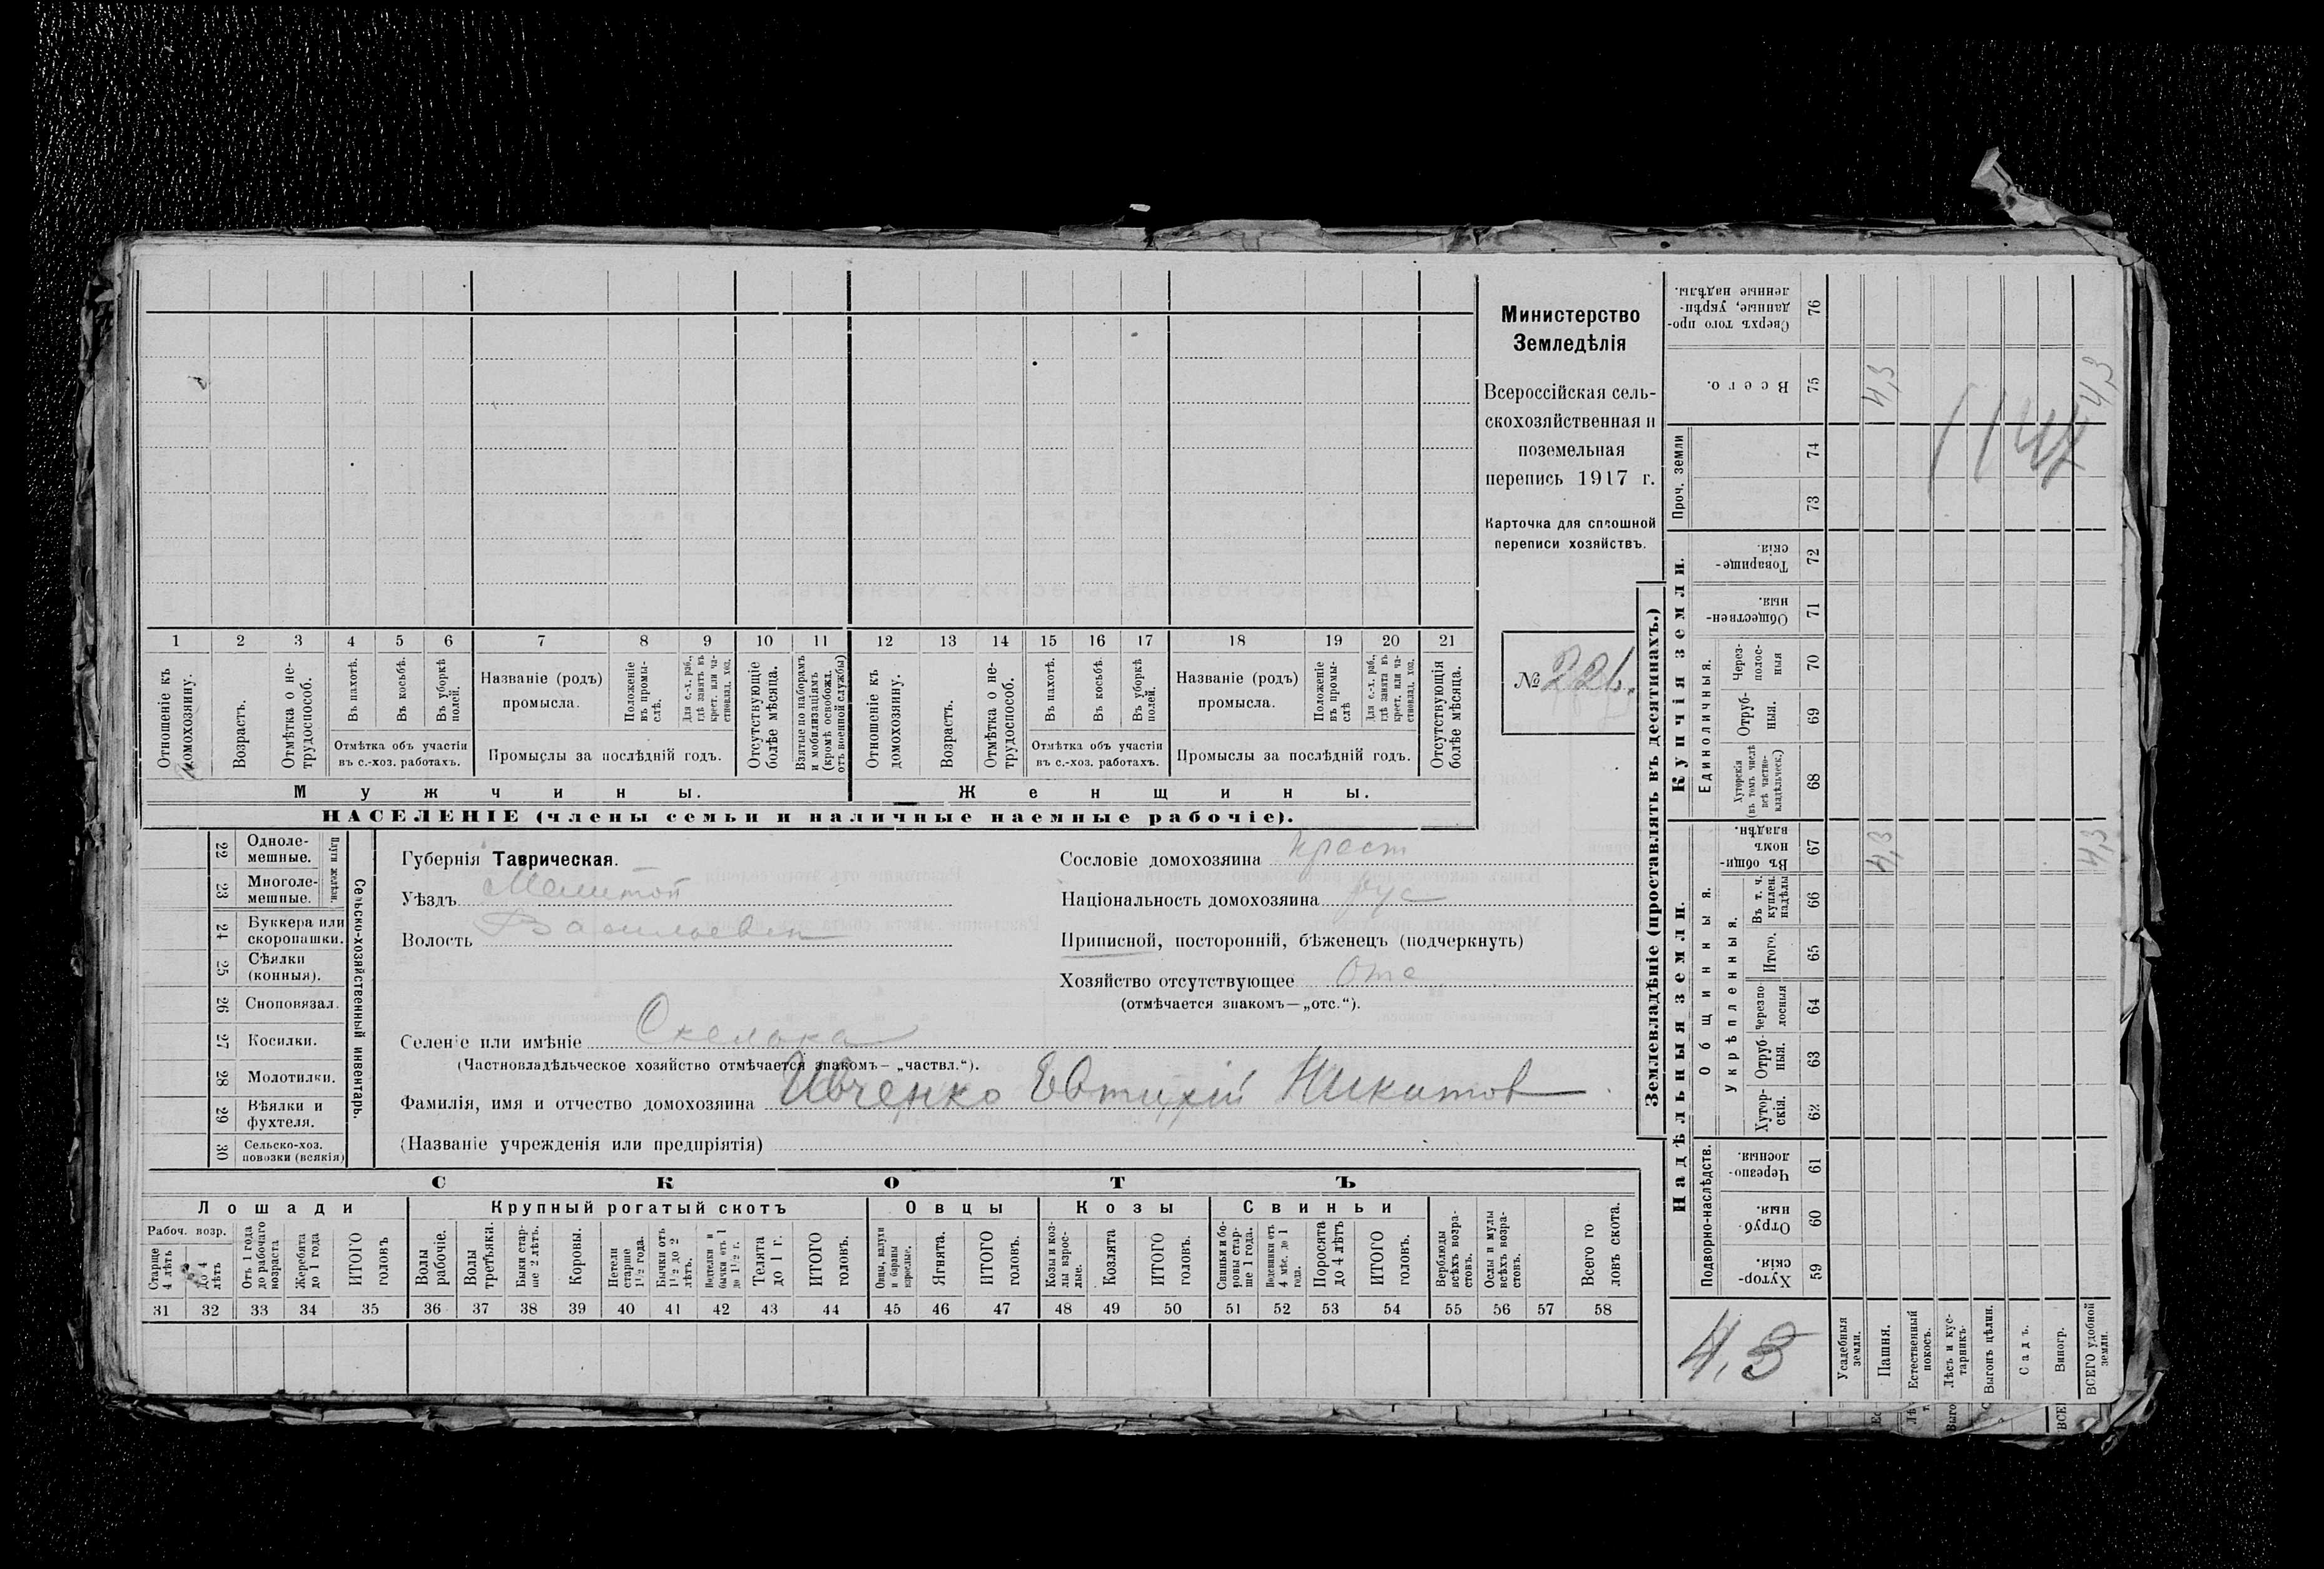 Министерство
Земледѣлія
Всероссійская сель-
скохозяйственная и
поземельная
перепись 1917 г.
Карточка для сплошной
переписи хозяйствъ.
№ 226.
1 2 3 4 5 6 7 8 9 10 11 12 13 14 15 16 17 18 19 20 21
Отношеніе къ домохозяину.
Возрастъ.
Отмѣтка о не-трудоспособ.
Въ пахотѣ.
Въ косьбѣ.
Въ уборкѣ полей.
Отмѣтка объ участіи
въ с.-хоз. работахъ.
Названіе (родъ)
промысла.
Положеніе въ промы-слѣ.
Для с.-х. раб., гдѣ занятъ въ крест. или ча-стновлад. хоз.
Промыслы за послѣдній годъ.
Отсутствующіе болѣе мѣсяца.
Взятые по наборамъ и мобилизаціямъ (кромѣ освобожд. отъ военной службы)
Отношеніе къ домохозяину.
Возрастъ.
Отмѣтка о не-трудоспособ.
Въ пахотѣ.
Въ косьбѣ.
Въ уборкѣ полей.
Отмѣтка объ участіи
въ с.-хоз. работахъ.
Названіе (родъ)
промысла.
Положеніе въ промы-слѣ
Для с.-х. раб., гдѣ занята въ крест. или ча-стновлад. хоз.
Промыслы за послѣдній годъ.
Отсутствующія болѣе мѣсяца.
Мужчины.
Женщины.
НАСЕЛЕНІЕ (члены семьи и наличные наемные рабочіе).
22 Одноле-мешные.
23 Многоле-мешные.
Плуги желѣзн.
24 Буккера или скоропашки.
25 Сѣялки (конныя).
26 Сноповязал.
27 Косилки.
28 Молотилки.
29 Вѣялки и фухтеля.
30 Сельско-хоз. повозки (всякія)
Сельско-хозяйственный инвентарь.
Губернія Таврическая.
Уѣздъ Мелитоп
Волость Васильевск
Сословіе домохозяина крест
Національность домохозяина рус
Приписной, посторонній, бѣженецъ (подчеркнуть)
Хозяйство отсутствующее Отс
(отмѣчается знакомъ—„отс.“).
Селеніе или имѣніе Скельки
(Частновладѣльческое хозяйство отмѣчается знакомъ—„частвл.“).
Фамилія, имя и отчество домохозяина Ивченко Евтихій Никитов
(Названіе учрежденія или предпріятія)
СКОТЪ
Лошади
Крупный рогатый скотъ
Овцы
Козы
Свиньи
Рабоч. возр.
Старше 4 лѣтъ
До 4 лѣтъ
Отъ 1 года до рабочаго возраста
Жеребята до 1 года
ИТОГО головъ
Волы рабочіе.
Волы третьяки.
Быки стар-ше 2 лѣтъ.
Коровы.
Нетели старше 1½ года.
Бычки отъ 1½ до 2 лѣтъ.
Подтелки и бычки отъ 1 до 1½ г.
Телята до 1 г.
ИТОГО головъ.
Овцы, валухи и бараны взрослые.
Ягнята.
ИТОГО головъ.
Козы и коз-лы взрос-лые.
Козлята
ИТОГО головъ.
Свиньи и бо-ровы стар-ше 1 года.
Подсвинки отъ 4 мѣс. до 1 года.
Поросята до 4 лѣтъ
ИТОГО головъ.
Верблюды всѣхъ возра-стовъ.
Ослы и мулы всѣхъ возра-стовъ.
Всего го ловъ скота.
31 32 33 34 35 36 37 38 39 40 41 42 43 44 45 46 47 48 49 50 51 52 53 54 55 56 57 58
Землевладѣніе (проставлять въ десятинахъ.)
Купчія земли.
Надѣльныя земли.
Сверхъ того про-данные, укрѣп-ленные надѣлы. 76
Всего. 75
Проч. земли
74
73
Товарище-скія. 72
Обществен-ныя. 71
Единоличныя.
Через-полос-ныя 70
Отруб-ныя. 69
Хуторскія (въ томъ числѣ всѣ частно-владѣльческ.) 68
Общинныя.
Въ общи-номъ владѣн. 67
Укрѣпленныя.
Въ т. ч. куплен. надѣлы 66
Итого. 65
Черезпо-лосныя 64
Отруб-ныя. 63
Хутор-скія. 62
Подворно-наслѣдств.
Черезпо-лосныя. 61
Отруб-ныя. 60
Хутор-скія. 59
4,3
4,3
4,3
4,3
4,3
Усадебныя земли.
Пашня.
Естественный покосъ.
Лѣсъ и кус-тарникъ.
Выгонъ цѣлин.
Садъ.
Виногр.
ВСЕГО удобной земли.